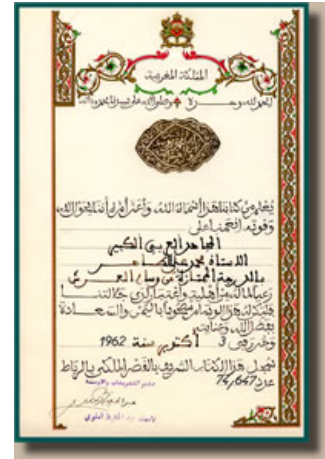 المملكة المغربية
الحمد لله وحده
يعلم من كتابنا هذا أسماه الله وأعز أمره أننا بحول الله
وقوته أنعمنا على
المجاهد العربي الكبير
الاستاذ محمد علي الطاهر
بالدرجة الممتازة من وسام العرش
رعيا لما له من أهلية واعتبار لدى جلالتنا
فليتقلد هذا الوسام مصحوبا باليمن والسعادة
بفضل الله وعنايته
وحرر في 3 أكتوبر سنة 1962
سجل هذا الكتاب الشريف بالقصر الملكي بالرباط
عدد 74/647
مدير التشريفات والاوسمة